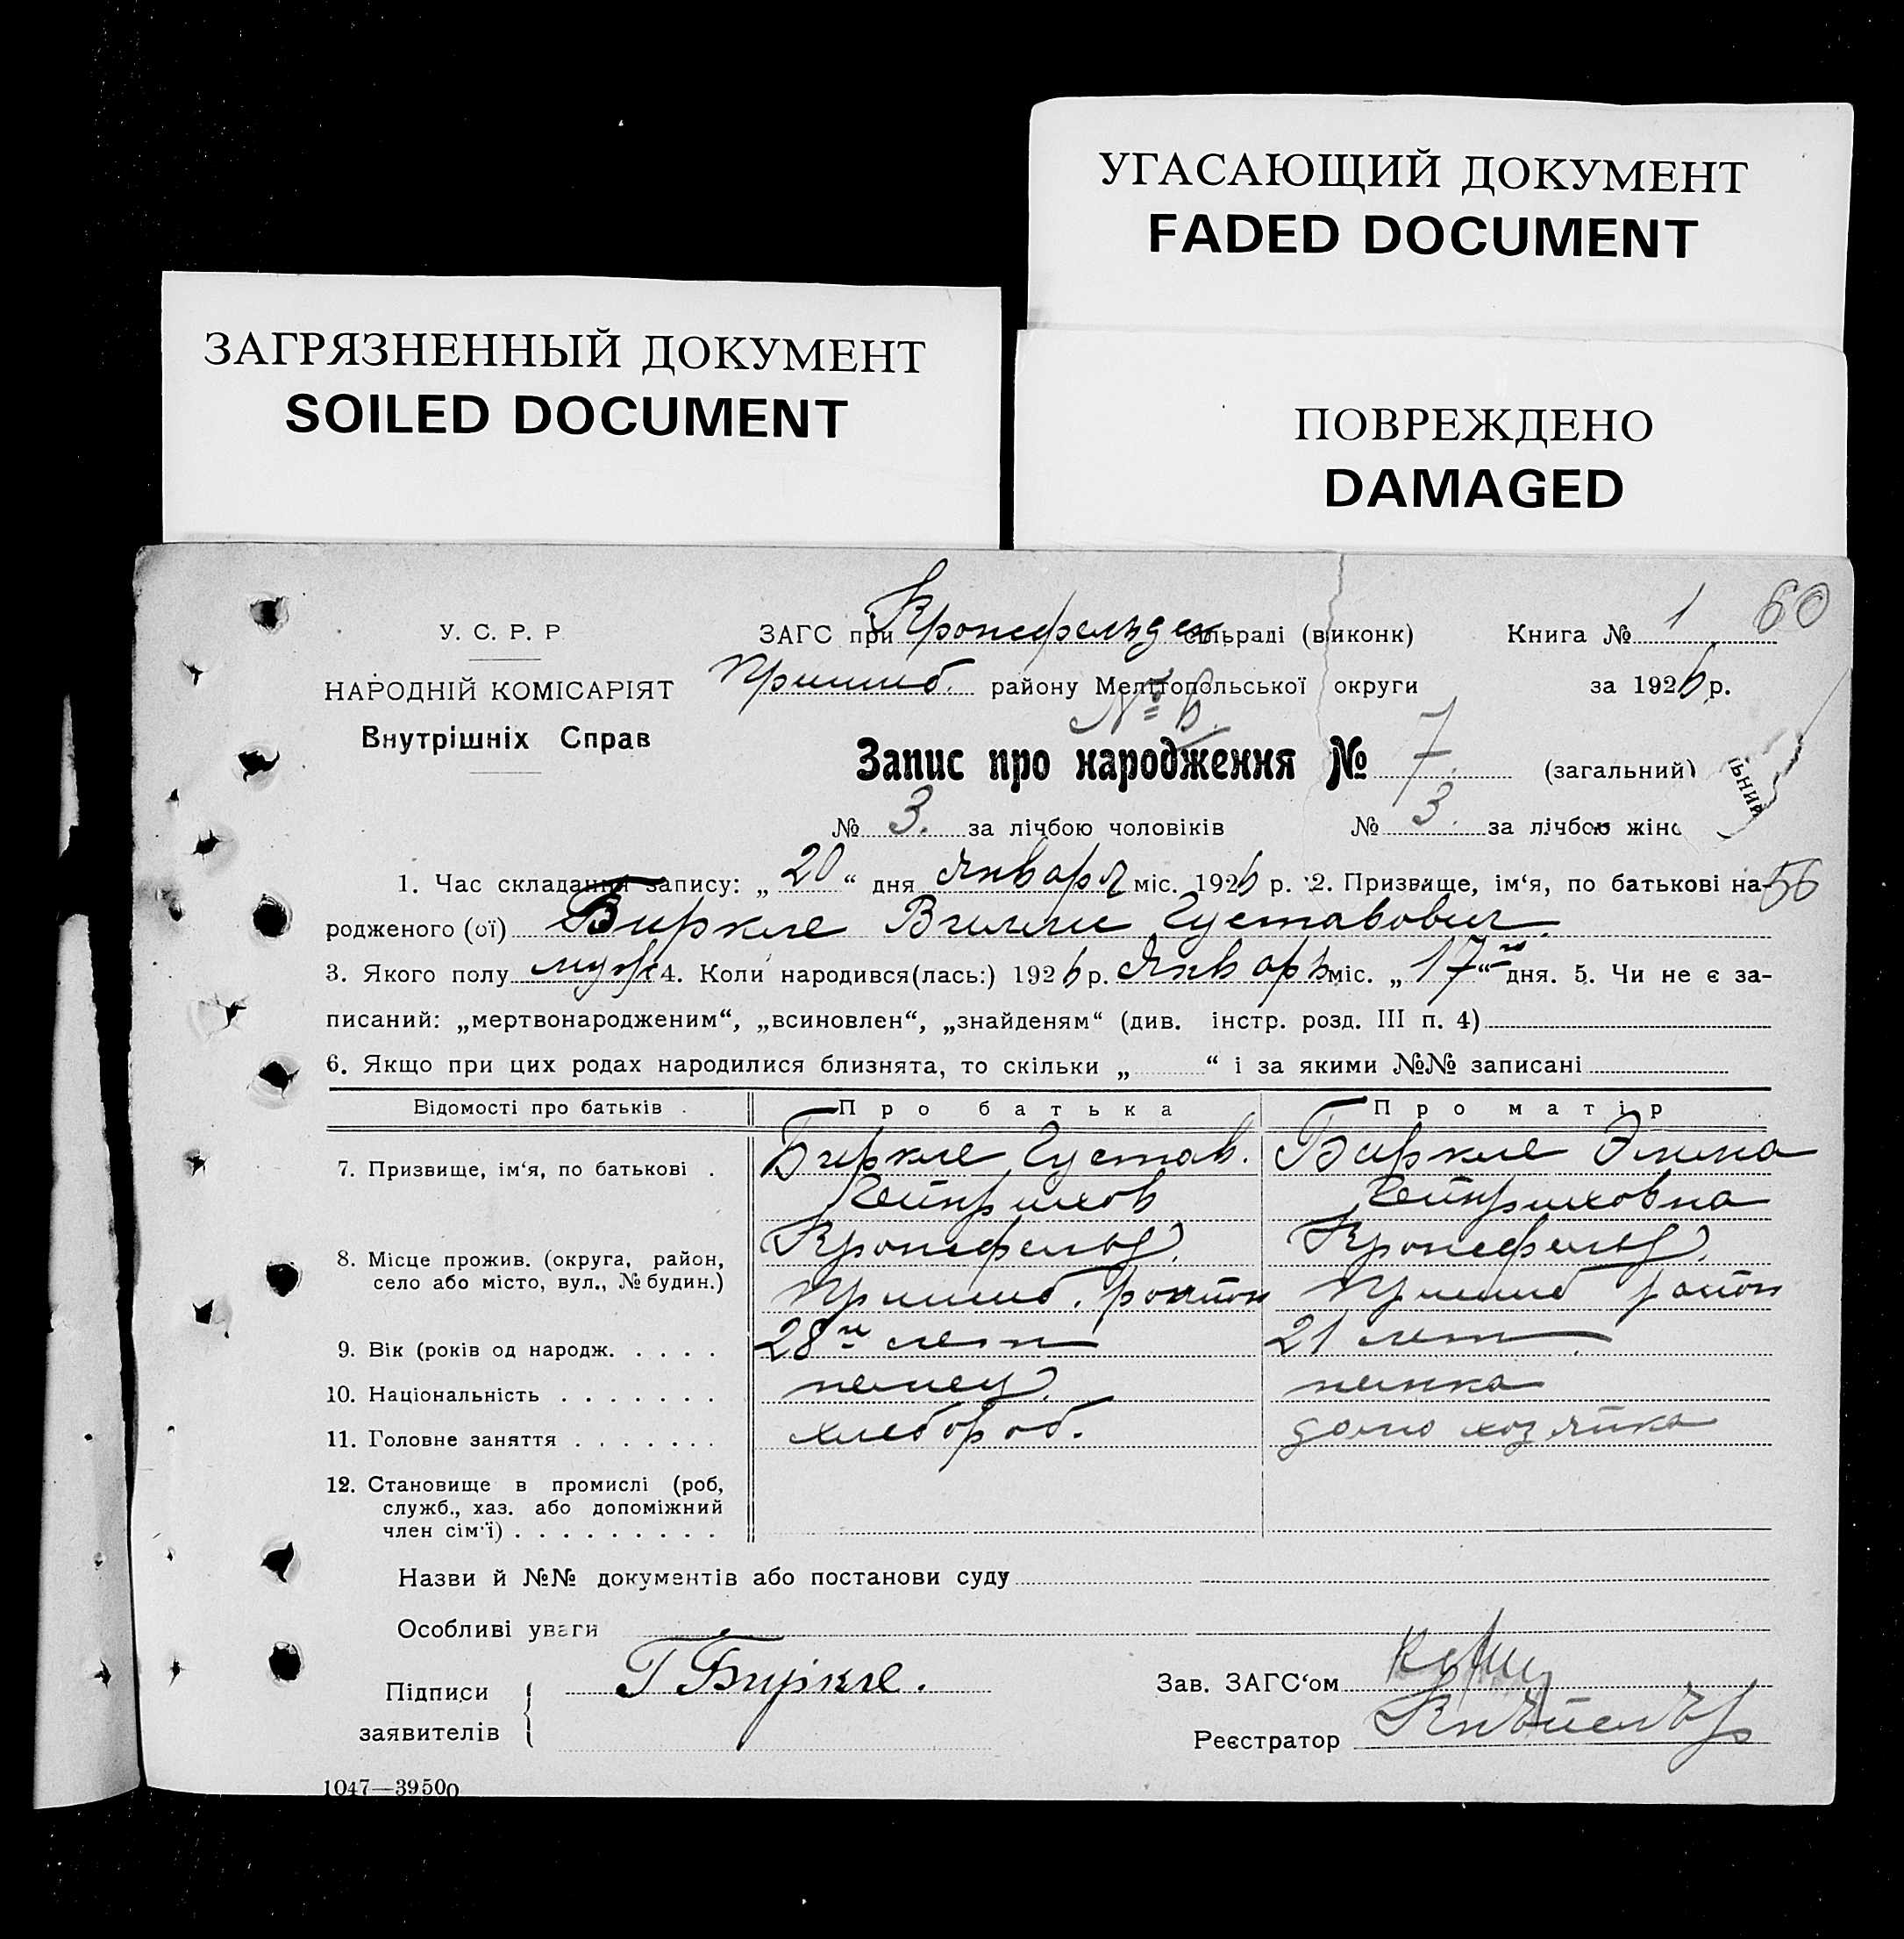 УГАСАЮЩИЙ ДОКУМЕНТ
FADED DOCUMENT
ЗАГРЯЗНЕННЫЙ ДОКУМЕНТ
SOILED DOCUMENT
ПОВРЕЖДЕНО
DAMAGED
60
У. С. Р. Р
ЗАГС при Кронсфельдск сільраді (виконк) Книга № 1
НАРОДНІЙ КОМІСАРІЯТ
Пришиб. району Мелітопольської округи за 1926 р.
Внутрішніх Справ
№ 6
Запис про народження № 7. (загальний)
ьний
№ 3. за лічбою чоловіків № 3. за лічбою жінс
1. Час складання запису: „20“ дня Января міс. 1926 р. 2. Призвище, ім‘я, по батькові на-
56
родженого (ої) Биркле Вилли Густавович.
3. Якого полу муж 4. Коли народився(лась:) 1926 р. Январь міс. „17“ дня. 5. Чи не є за-
писаний: „мертвонародженим“, „всиновлен“, „знайденям“ (див. інстр. розд. III п. 4)
6. Якщо при цих родах народилися близнята, то скільки „ “ і за якими №№ записані
Відомості про батьків . Про батька Про матір
7. Призвище, ім‘я, по батькові . Биркле Густав. Биркле Эмма
Гейнрихов Гейнриховна
8. Місце прожив. (округа, район, Кронсфельд. Кронсфельд.
село або місто, вул., № будин.) Пришиб. район Пришиб район
9. Вік (років од народж. . . . . 28 лет 21 лет
10. Національність . . . . . . . немец немка
11. Головне заняття . . . . . . . хлебороб. домохозяйка
12. Становище в промислі (роб,
служб., хаз. або допоміжний
член сім‘ї) . . . . . . . . .
Назви й №№ документів або постанови суду
Особливі уваги
Підписи Г Биркле.
заявителів
Зав. ЗАГС‘ом
Реєстратор
1047—39500